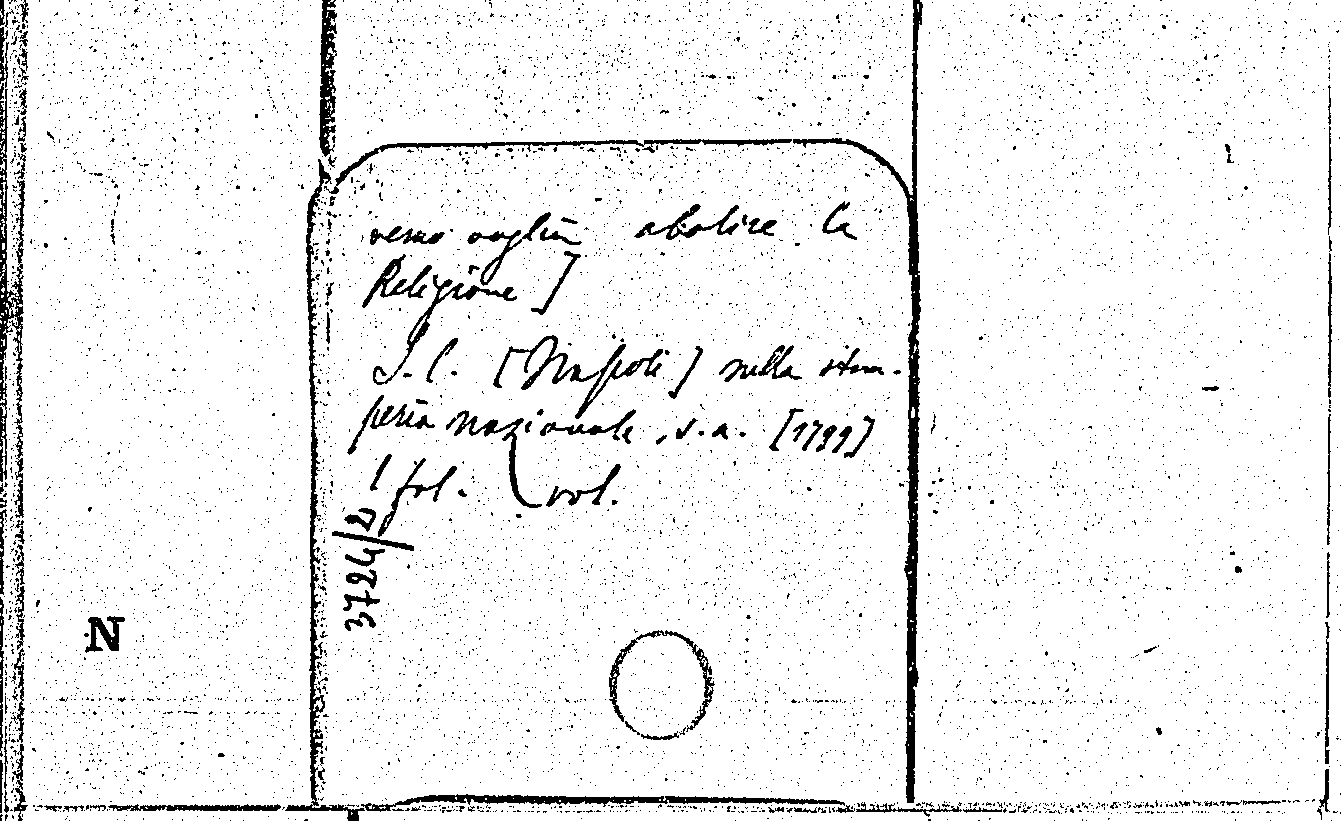 verno voglia abolire la
Religione]
S.l. [Napoli] nella stam-
peria nazionale, s.a. [1799]
1 fol. vol.
3724/2
N